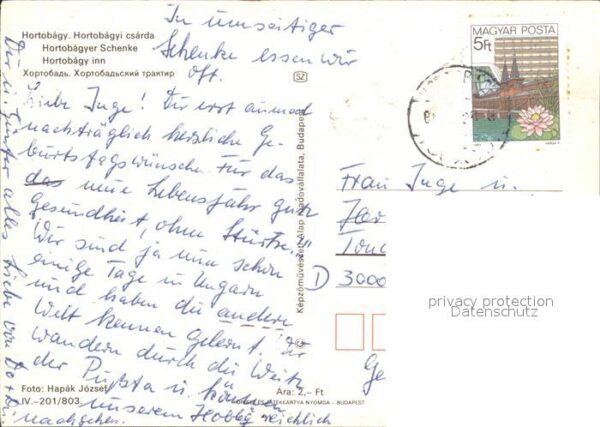 Hortobágy. Hortobágyi csárda
Hortobágyer Schenke
Hortobágy inn
Хортобадь. Хортобадьский трактир
In umseitiger
Schenke essen wir
oft.
Liebe Inge! Dir erst einmal
nachträglich herzliche Ge-
burtstagswünsche. Für das
das neue Lebensjahr gute
Gesundheit, ohne Stürze!!
Wir sind ja nun schon
einige Tage in Ungarn
und haben die andere
Welt kennen gelernt. Wir
wandern durch die Weite
der Pußta u. können
unserem Hobby reichlich
nachgehen.
Dir u. Günter alles Liebe von
Foto: Hapák József
IV.-201/803
Ára: 2,- Ft
OFFSET ÉS JÁTÉKKÁRTYA NYOMDA - BUDAPEST
© Képzőművészeti Alap Kiadóvállalata, Budapest
SZ
MAGYAR POSTA
5Ft
Frau Inge u.
D 3000
privacy protection
Datenschutz